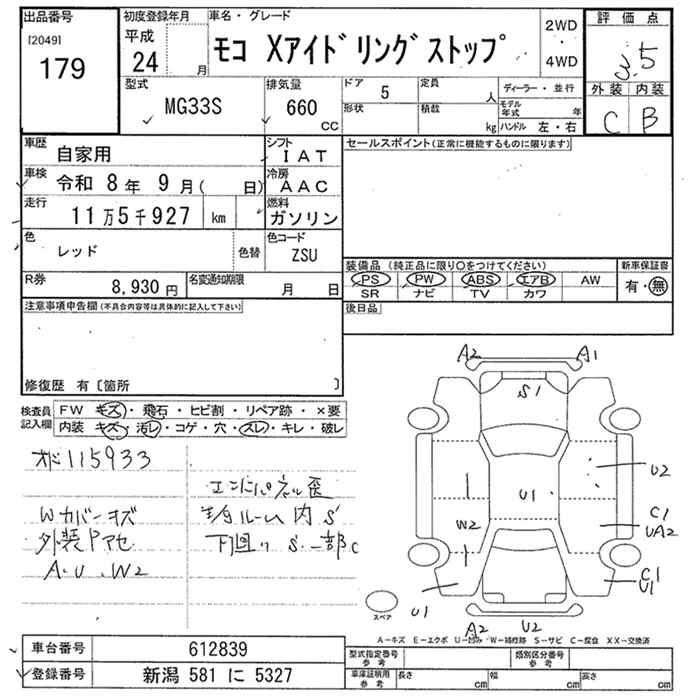 出品番号
[2049]
179
初度登録年月
平成
24 月
車名・グレード
モコ Xアイドリングストップ
2WD
・
4WD
評価点
3.5
外装 内装
C B
型式
MG33S
排気量
660
CC
ドア 5
形状
定員 人
積載 kg
ディーラー・並行
モデル年式 年
ハンドル 左・右
車歴
自家用
シフト
IAT
車検 令和 8年 9月( 日)
冷房
AAC
走行
11万5千927 km
燃料
ガソリン
色
レッド
色替
色コード
ZSU
R券
8,930 円
名変通知期限
月 日
セールスポイント(正常に機能するものに限ります)
装備品 (純正品に限り○をつけてください)
新車保証書
PS PW ABS エアB AW
有・無
SR ナビ TV カワ
後日品
注意事項申告欄(不具合内容等は具体的に記入して下さい)
修復歴 有〔箇所 〕
検査員
記入欄
FW キズ・飛石・ヒビ割・リペア跡・×要
内装 キズ・汚レ・コゲ・穴・スレ・キレ・破レ
オド115933
Wカバーキズ
外装Pアセ
A.U.W2
エンドパネル歪
エンジンルーム内S
下回りS.一部C
A2
A1
S1
U2
U1
C1
UA2
W2
C1
U1
U1
A2
U2
スペア
A-キズ E-エクボ U-凹み W-補修跡 S-サビ C-腐食 XX-交換済
車台番号
612839
登録番号
新潟 581 に 5327
型式指定番号
参考
類別区分番号
参考
車庫証明用
参考
長さ cm
幅 cm
高さ cm